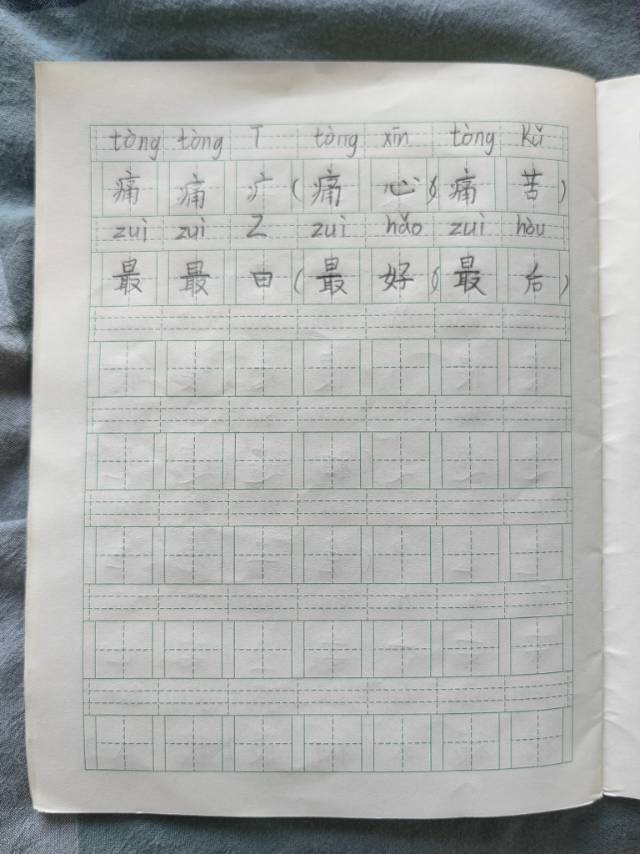 tòng tòng T tòng xīn tòng Kǔ
痛 痛 疒 (痛 心)(痛 苦)
zuì zuì Z zuì hǎo zuì hòu
最 最 曰 (最 好)(最 后)